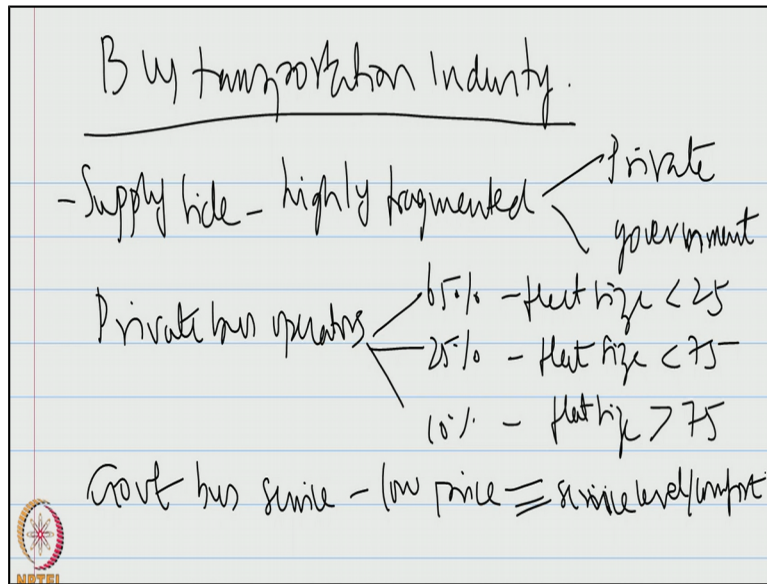 Bus transportation Industry.
- Supply side - highly fragmented
Private
government
Private bus operators
65% - fleet size < 25
25% - fleet size < 75
10% - fleet size > 75
Govt bus service - low price = service level/comfort
NPTEL